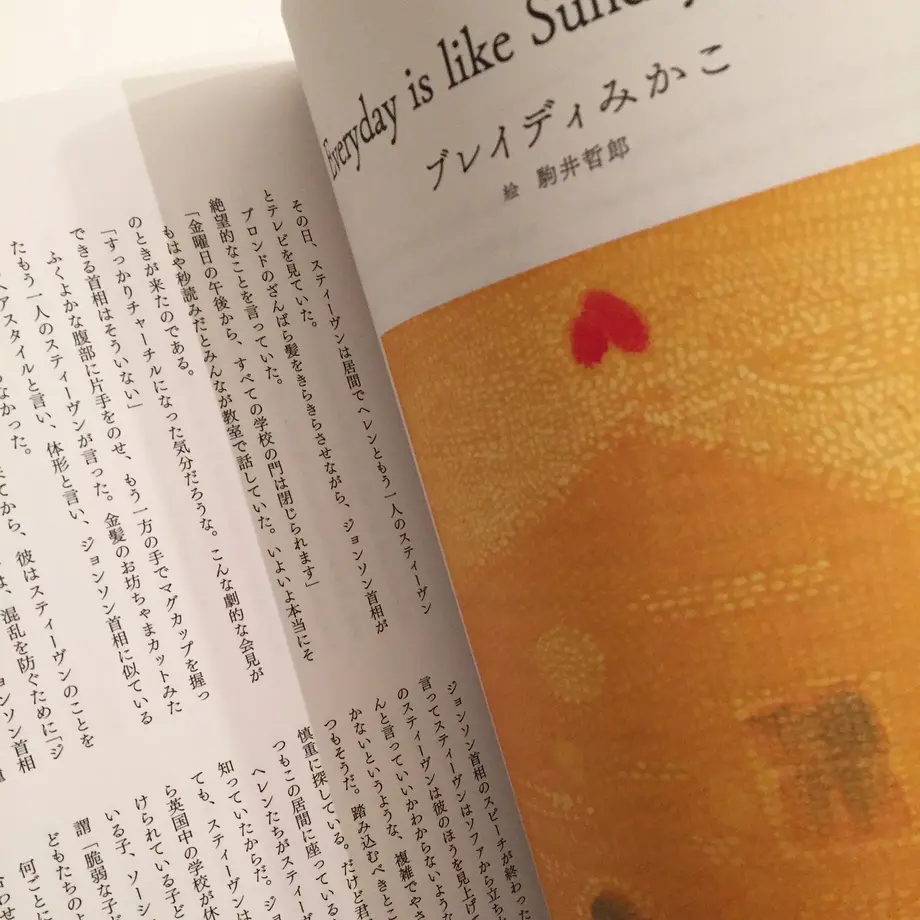 Everyday is like Sunday
ブレイディみかこ
絵 駒井哲郎
その日、スティーヴンは居間でヘレンともう一人のスティーヴン
とテレビを見ていた。
ブロンドのざんばら髪をきらきらさせながら、ジョンソン首相が
絶望的なことを言っていた。
「金曜日の午後から、すべての学校の門は閉じられます」
もはや秒読みだとみんなが教室で話していた。いよいよ本当にそ
のときが来たのである。
「すっかりチャーチルになった気分だろうな。こんな劇的な会見が
できる首相はそういない」
ふくよかな腹部に片手をのせ、もう一方の手でマグカップを握っ
たもう一人のスティーヴンが言った。金髪のお坊ちゃまカットみた
ヘアスタイルと言い、体形と言い、ジョンソン首相に似ている
もなかった。
来てから、彼はスティーヴンのことを
は、混乱を防ぐために「ジ
ョンソン首相
ジョンソン首相のスピーチが終わった
言ってスティーヴンはソファから立ち
のスティーヴンは彼のほうを見上げて
んと言っていいかわからないような
かないというような、複雑でやさ
つもそうだ。踏み込むべきとこ
慎重に探している。だけど君
つもこの居間に座っている
ヘレンたちがスティー
知っていたからだ。ジ
ても、スティーヴンは
ら英国中の学校が休
けられている子ど
いる子、ソーシ
謂「脆弱な子ど
どもたちのよ
何ごとに
合わせ